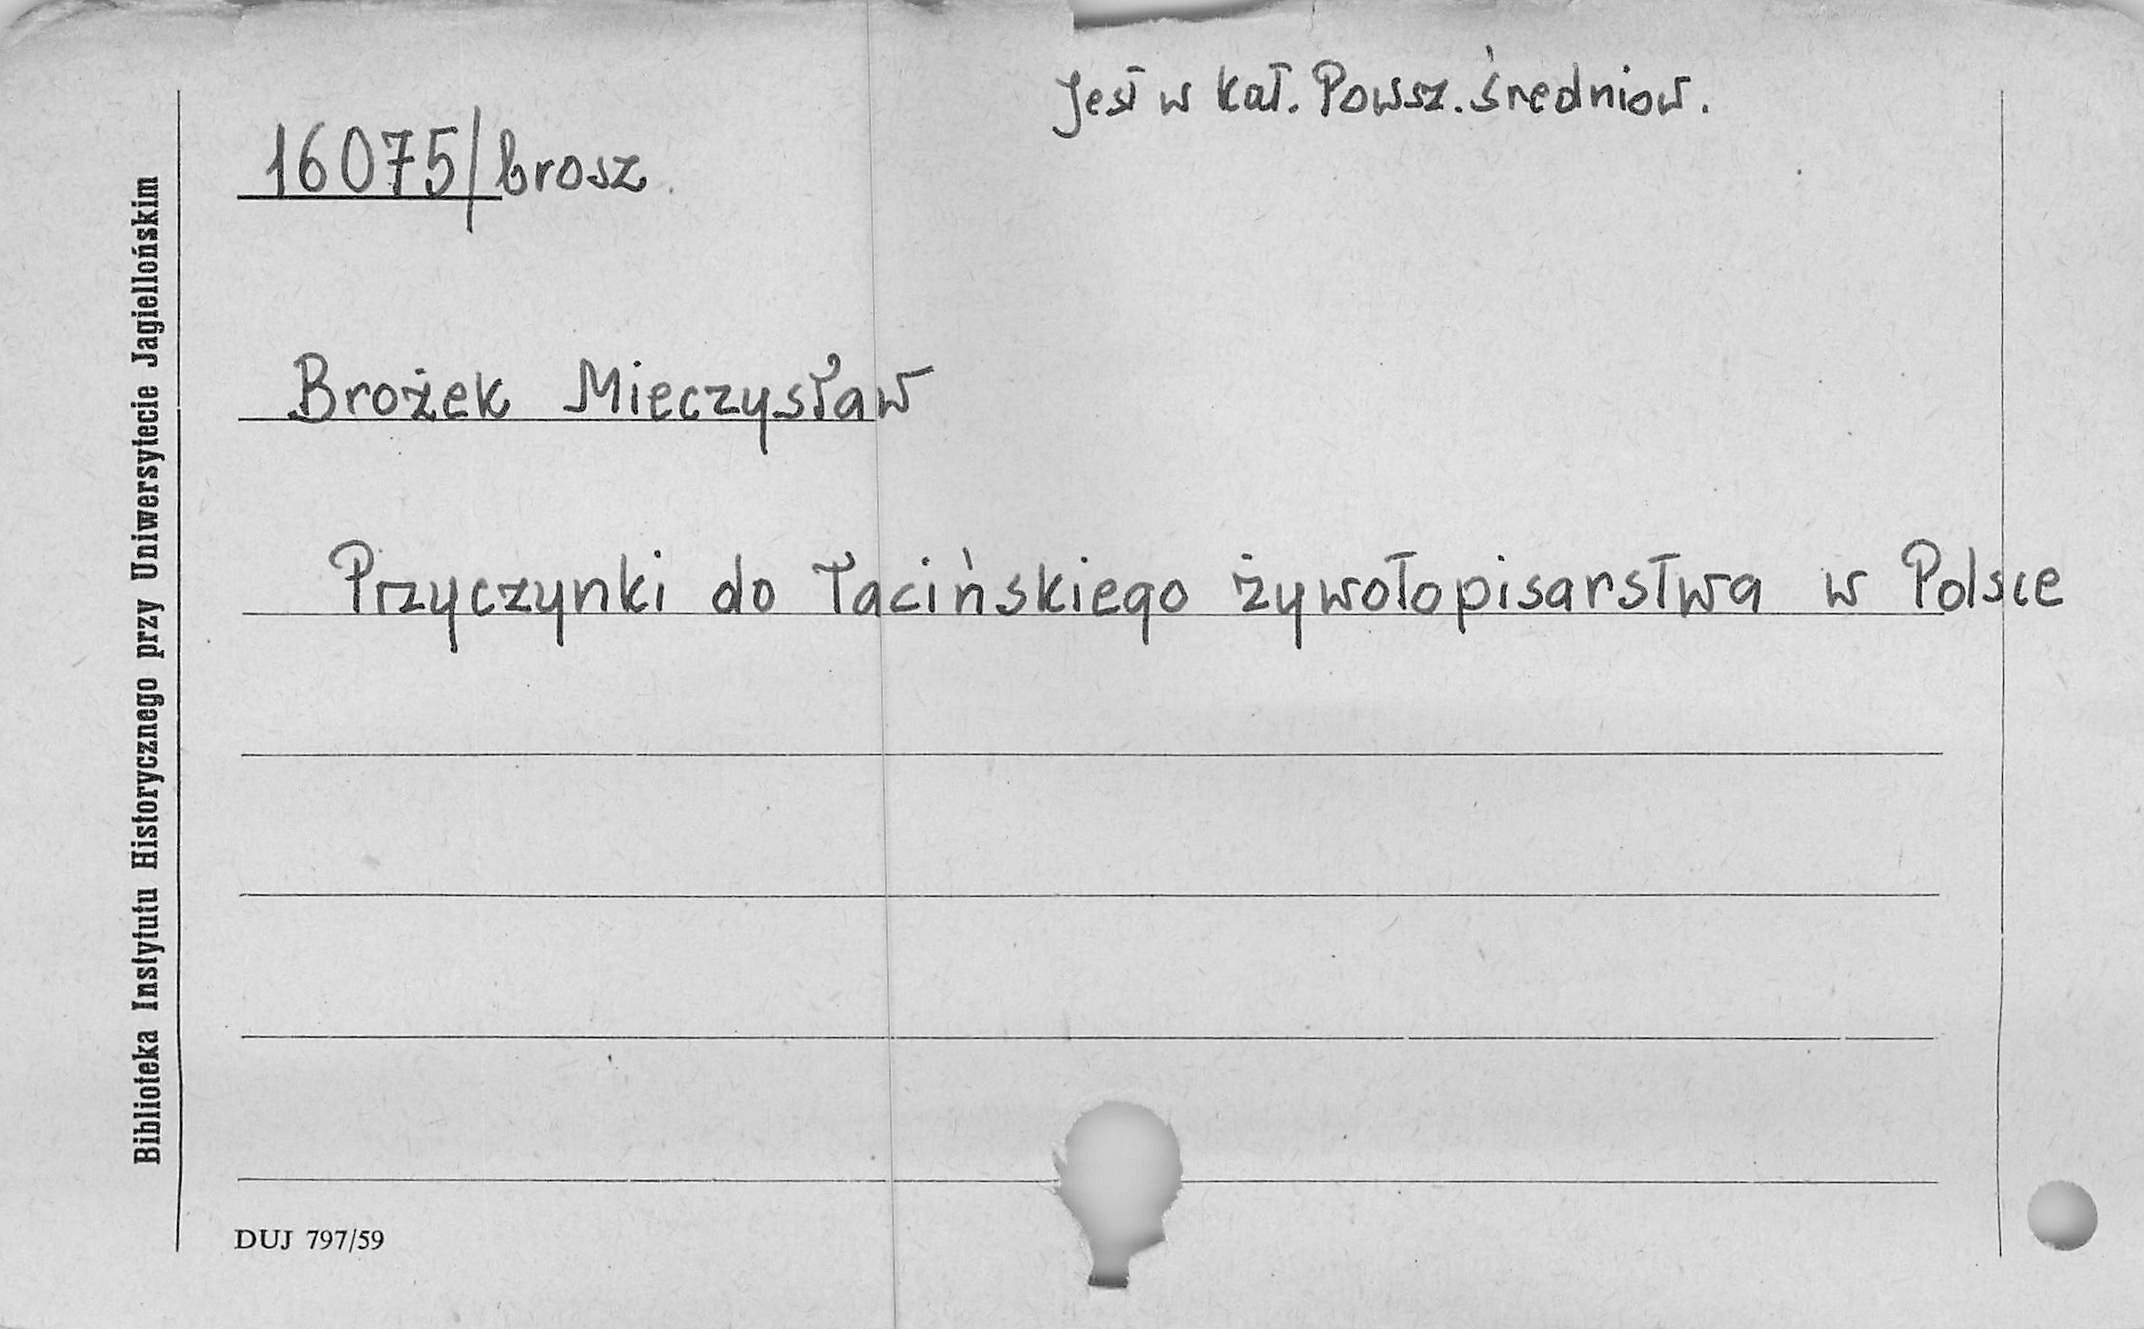 Jest w kat. Powsz. średniow.
16075/brosz.
Brożek Mieczysław
Przyczynki do łacińskiego żywotopisarstwa w Polsce
Biblioteka Instytutu Historycznego przy Uniwersytecie Jagiellońskim
DUJ 797/59